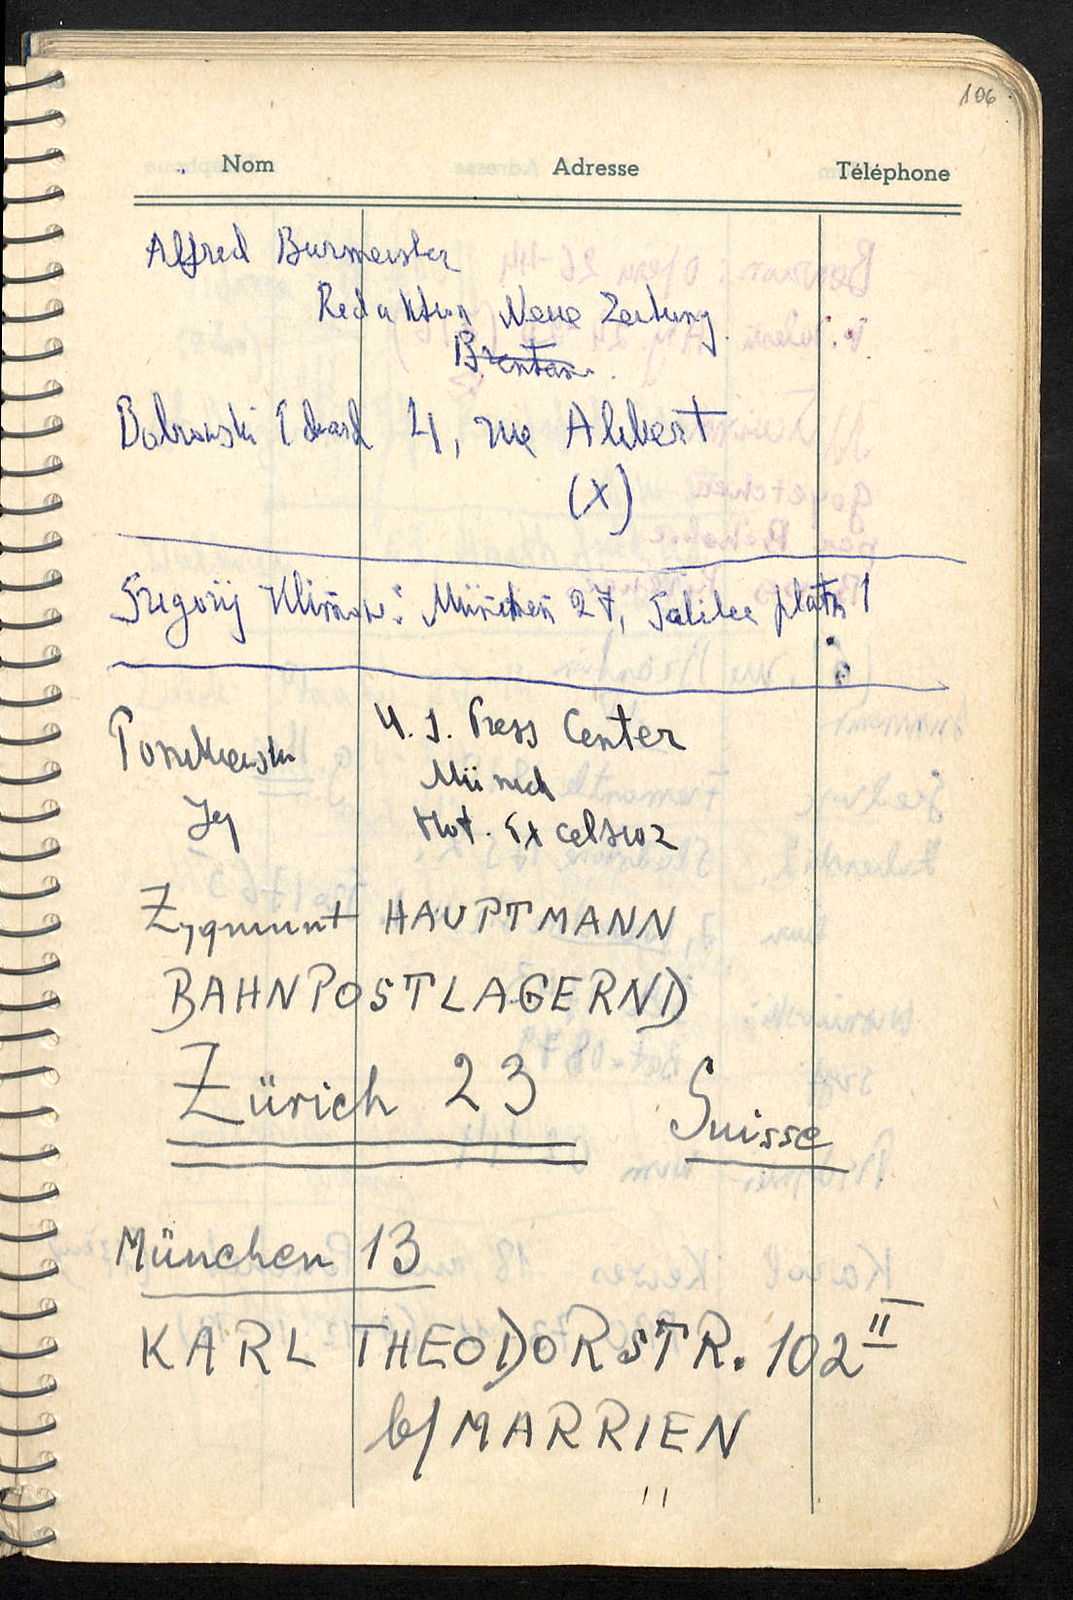 106
Nom Adresse Téléphone
Alfred Burmeister
Redaktion Neue Zeitung
Brentan
4, rue Alibert
(X)
Gregorij Klimow: München 27, Galilei platz 1
U. S. Press Center
Münich
Hot. Excelsior
Zygmunt HAUPTMANN
BAHNPOSTLAGERND
Zürich 23 Suisse
München 13
KARL THEODORSTR. 102 II
b/MARRIEN